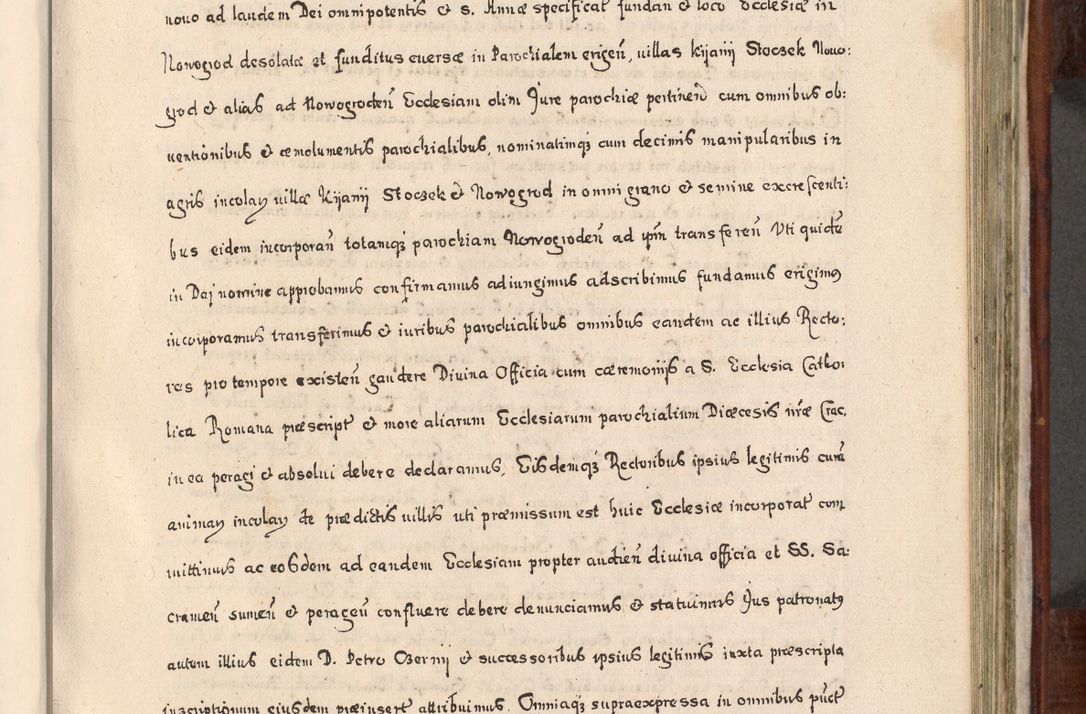 novo ad laudem Dei omnipotentis & S. Annæ specificat fundan & loco Ecclesiæ in
Nowogrod desolatæ et funditus eversæ in Parochialem erigeñ, villas Kijanij Stoczek Nowo:
grod & alias ad Nowogrodeñ Ecclesiam olim Jure parochiæ pertineñ cum omnibus ob:
ventionibus & æmolumentis parochialibus, nominatimq3 cum decimis manipularibus in
agris incolaꝝ villæ Kijanij Stoczek & Nowogrod in omni grano & semine excrescenti:
bus eidem incorporañ totamq3 parochiam Nowogrodeñ ad ipm̃ transfereñ Uti quidẽ
in Dej nomine approbamus confirmamus adiungimus adscribimus fundamus erigimꝰ
incorporamus transferimus & iuribus parochialibus omnibus eandem ac illius Recto:
res pro tempore existeñ gaudere Divina Officia cum cæremonijs a S. Ecclesia Catho:
lica Romana præscript & more aliarum Ecclesiarum parochialium Diæcesis nr̃æ Crac.
in ea peragi & absolvi debere declaramus, Eisdemq3 Rectoribus ipsius legitimis curã
animaꝝ incolaꝝ de prædictis villis uti præmissum est huic Ecclesiæ incorporat com
mittimus ac eosdem ad eandem Ecclesiam propter audieñ divina officia et SS. Sa:
crameñ sumeñ & perageñ confluere debere denunciamus & statuimus Jus patronatꝰ
autem illius eidem D. Petro Czernij & successoribus ipsius legitimis iuxta præscripta
inscriptionum eiusdem præinsert attribuimus. Omniaq3 supraexpressa in omnibus puct